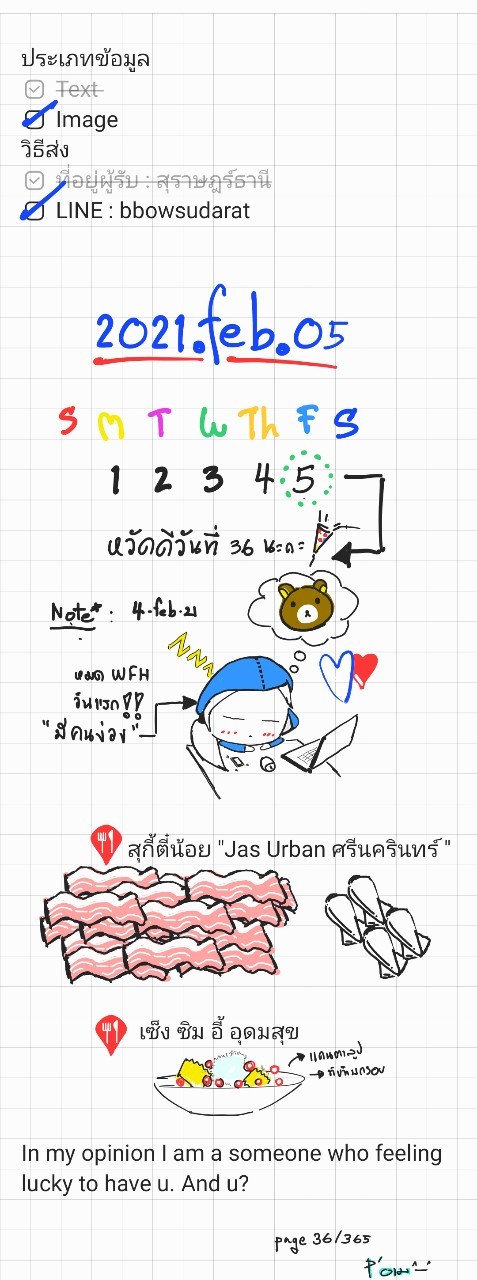 ประเภทข้อมูล
Text
Image
วิธีส่ง
ที่อยู่ผู้รับ : สุราษฎร์ธานี
LINE : bbowsudarat
2021.feb.05
S M T W Th F S
1 2 3 4 5
หวัดดีวันที่ 36 นะคะ
Note* : 4-feb-21
หมด WFH
วันแรก!!
"มีคนง่วง"
สุกี้ตี๋น้อย "Jas Urban ศรีนครินทร์"
เซ็ง ซิม อี้ อุดมสุข
แคนตาลูป
ทับทิมกรอบ
In my opinion I am a someone who feeling
lucky to have u. And u?
page 36/365